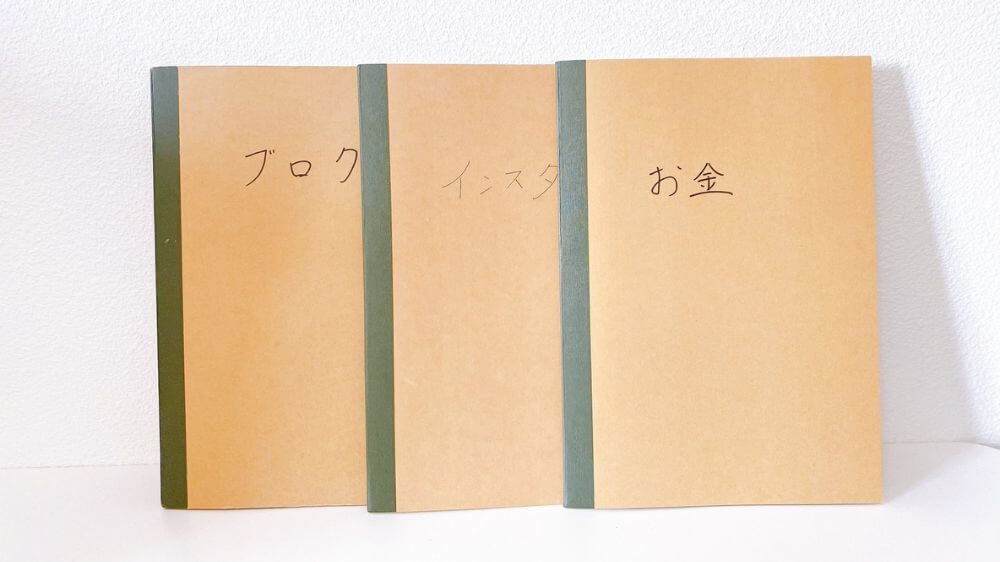 ブログ
インスタ
お金